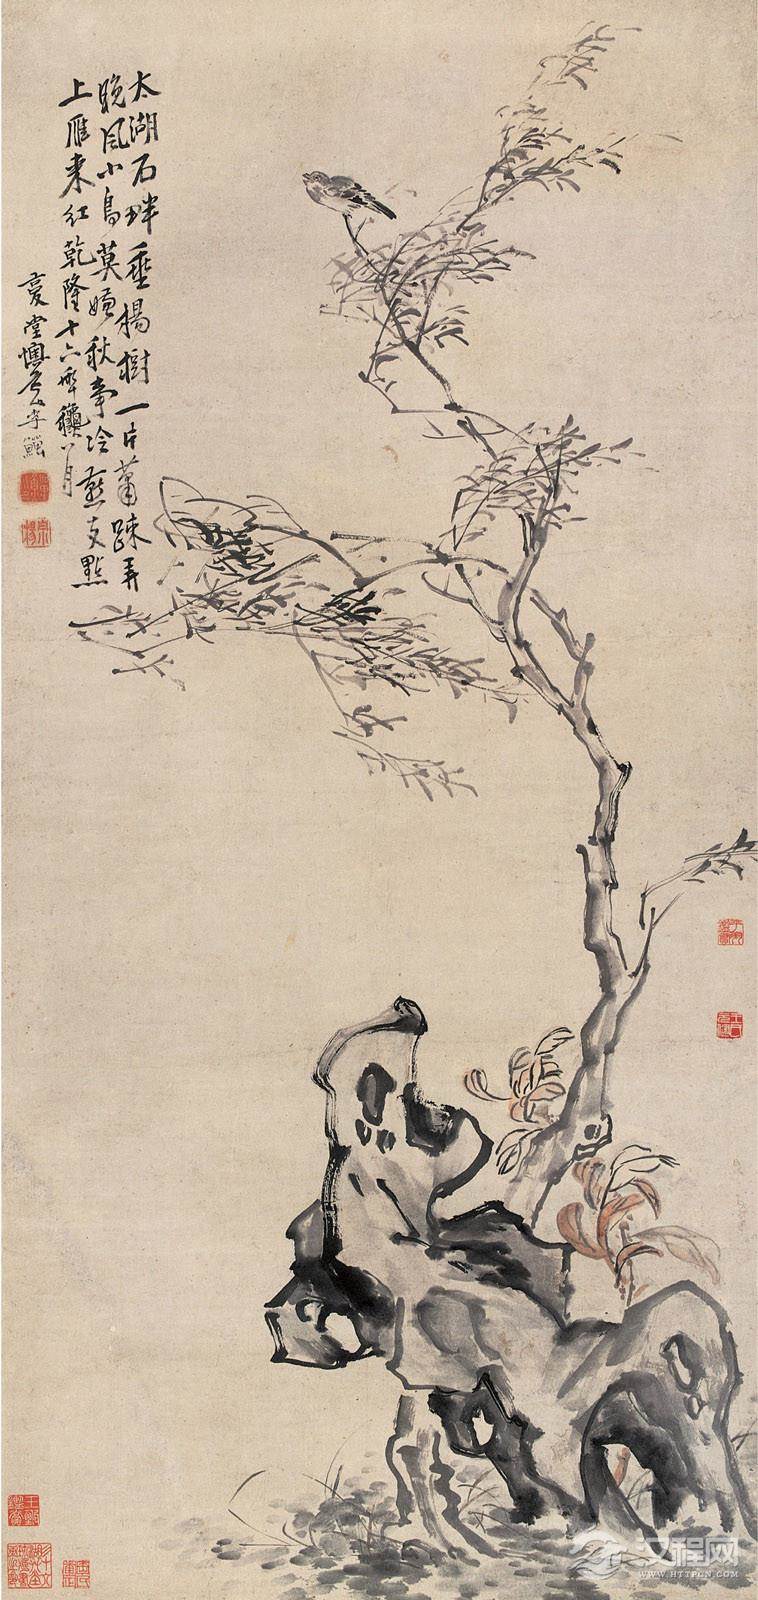 太湖石畔垂楊樹一片蕭疎弄
晚風小鳥莫嫌秋事冷燕支點
上雁来紅乾隆十六年龝八月
复堂懊道人李鱓
汉程网
WWW.HTTPCN.COM